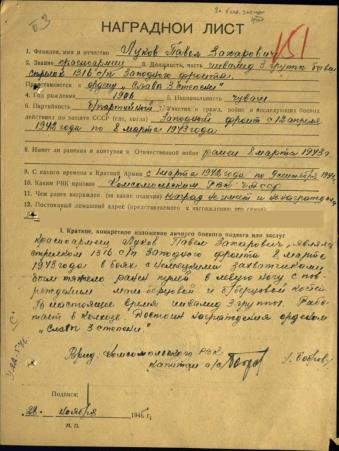 НАГРАДНОЙ ЛИСТ
1. Фамилия, имя и отчество Луков Павел Захарович
2. Звание красноармеец 3. Должность, часть инвалид 3 группы бывш.
стрелок 1316 с/п Западного фронта.
Представляется к ордену „Слава 3 степени“
4. Год рождения 1906 5. Национальность чуваш
6. Партийность б/партийный
действиях по защите СССР (где, когда) Западный фронт с 12 апреля
1942 года по 8 марта 1943 года.
8. Имеет ли ранения и контузии в Отечественной войне ранен 8 марта 1943 г.
9. С какого времени в Красной Армии с марта 1942 года по
10. Каким РВК призван Комсомольским РВК ЧАССР
11. Чем ранее награжден (за какие отличия) наград не имеет
12. Постоянный домашний адрес
I. Краткое, конкретное изложение личного боевого подвига или заслуг
красноармеец Луков Павел Захарович, являясь
стрелком 1316 с/п Западного фронта 8 марта
1943 года в боях с немецкими захватчиками
был тяжело ранен в левую ногу с пов-
реждением малоберцовой и берцовой костей
В настоящее время инвалид 3 группы. Рабо-
тает в колхозе. Достоин награждения орденом
„Слава 3 степени“
Врид. Комсомольского РВК
капитан а/с
Подпись:
„28“ ноября 194
м. п.